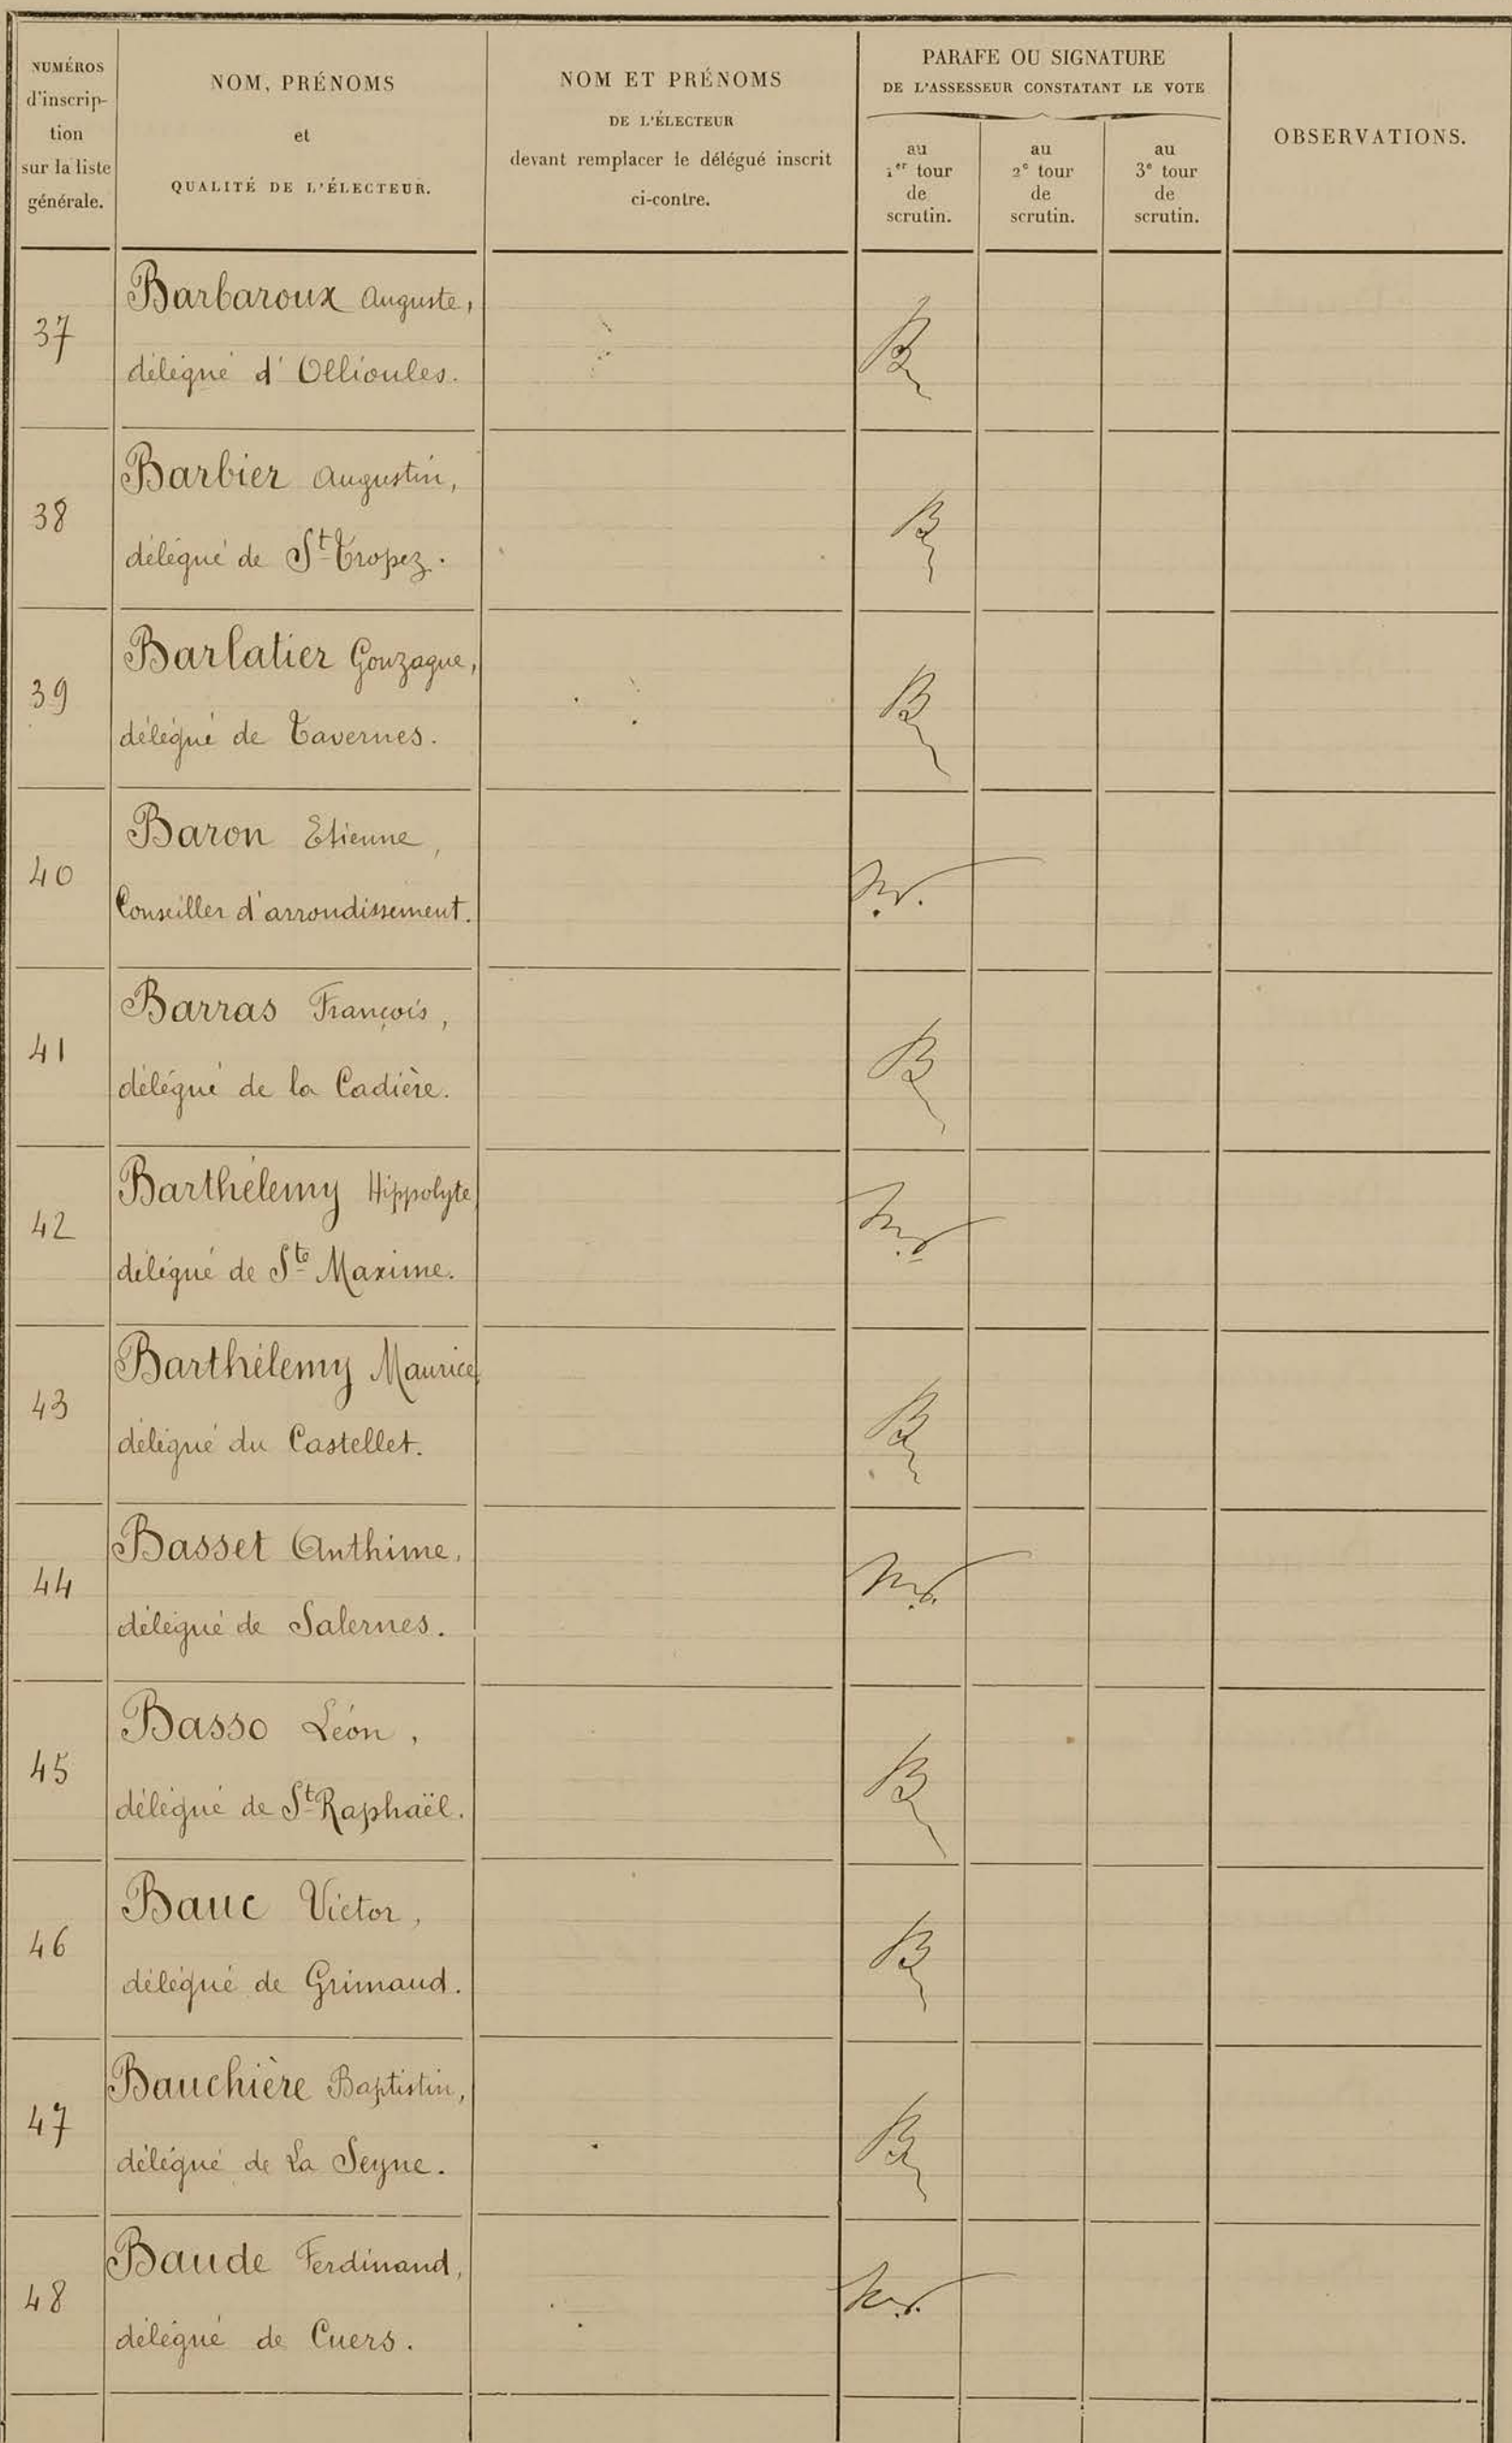 NUMÉROS
d'inscrip-
tion
sur la liste
générale.
NOM, PRÉNOMS
et
QUALITÉ DE L'ÉLECTEUR.
NOM ET PRÉNOMS
DE L'ÉLECTEUR
devant remplacer le délégué inscrit
ci-contre.
PARAFE OU SIGNATURE
DE L'ASSESSEUR CONSTATANT LE VOTE
au
1er tour
de
scrutin.
au
2e tour
de
scrutin.
au
3e tour
de
scrutin.
OBSERVATIONS.
37
Barbaroux Auguste,
délégué d'Ollioules.
38
Barbier Augustin,
délégué de St Tropez.
39
Barlatier Gonzague,
délégué de Tavernes.
40
Baron Etienne,
Conseiller d'arrondissement.
41
Barras François,
délégué de la Cadière.
42
Barthélemy Hippolyte,
délégué de Ste Maxime.
43
Barthélemy Maurice,
délégué du Castellet.
44
Basset Anthime,
délégué de Salernes.
45
Basso Léon,
délégué de St Raphaël.
46
Bauc Victor,
délégué de Grimaud.
47
Bauchière Baptistin,
délégué de La Seyne.
48
Baude Ferdinand,
délégué de Cuers.